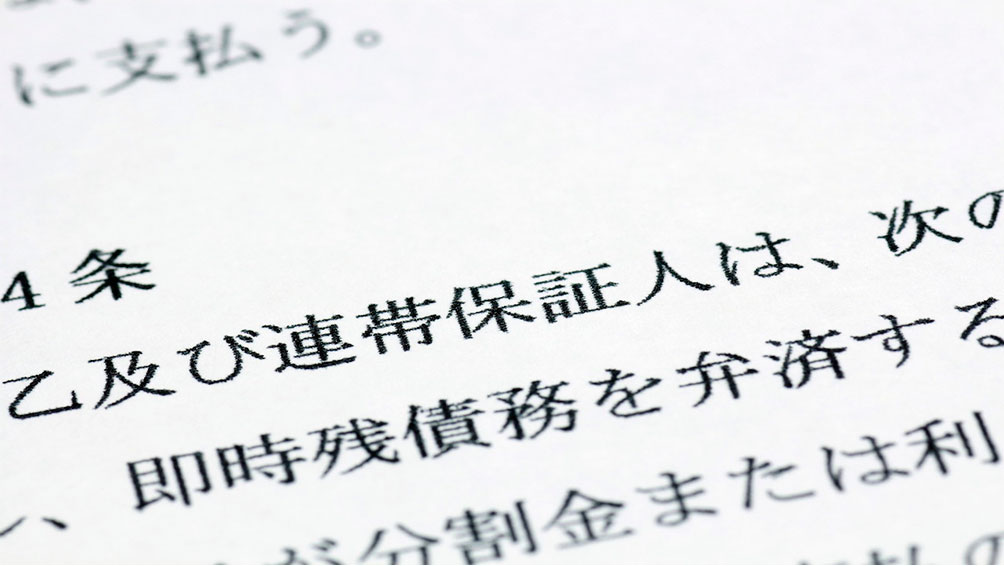 に支払う。
4条
乙及び連帯保証人は、次の
、即時残債務を弁済する
が分割金または利
払の